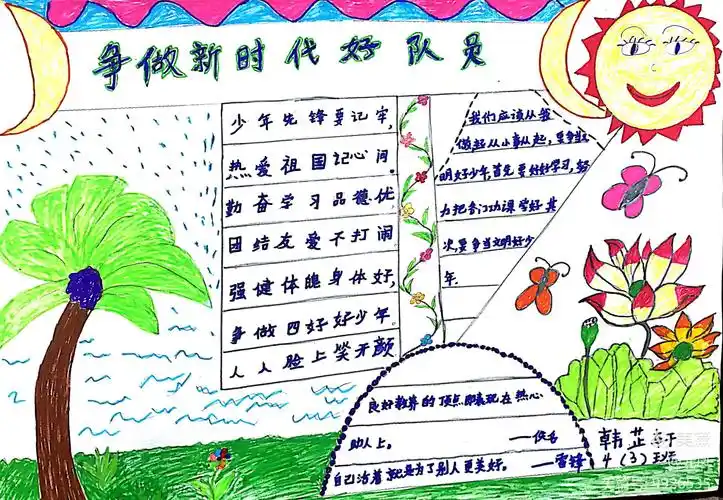 争做新时代好队员
少年先锋要记牢,
热爱祖国记心间。
勤奋学习品德优
团结友爱不打闹
强健体魄身体好,
争做四好好少年。
人人脸上笑开颜
我们应该从我
做起从小事从起,要争做
明好少年,首先要好好学习,努
力把各门功课学好其
次,要争当文明好少
年.
良好教养的顶点即表现在热心
助人上。 ——佚名
自己活着就是为了别人更美好。 ——雷锋
韩芷轩
4(3)班